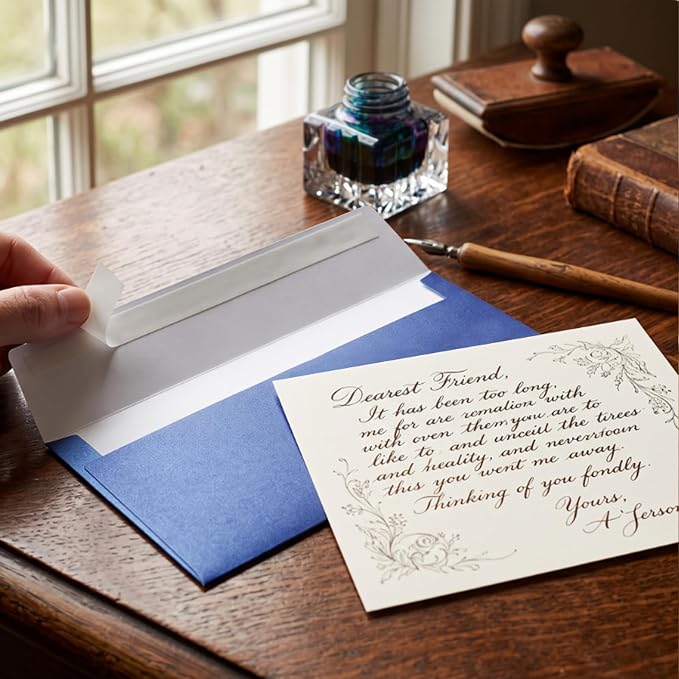 Dearest Friend,
It has been too long,
me for are romalion with
with oven them you are to
like to and unceitl the tirees
and reality, and neverrooin
this you went me away.
Thinking of you fondly.
Yours,
A'Jerson